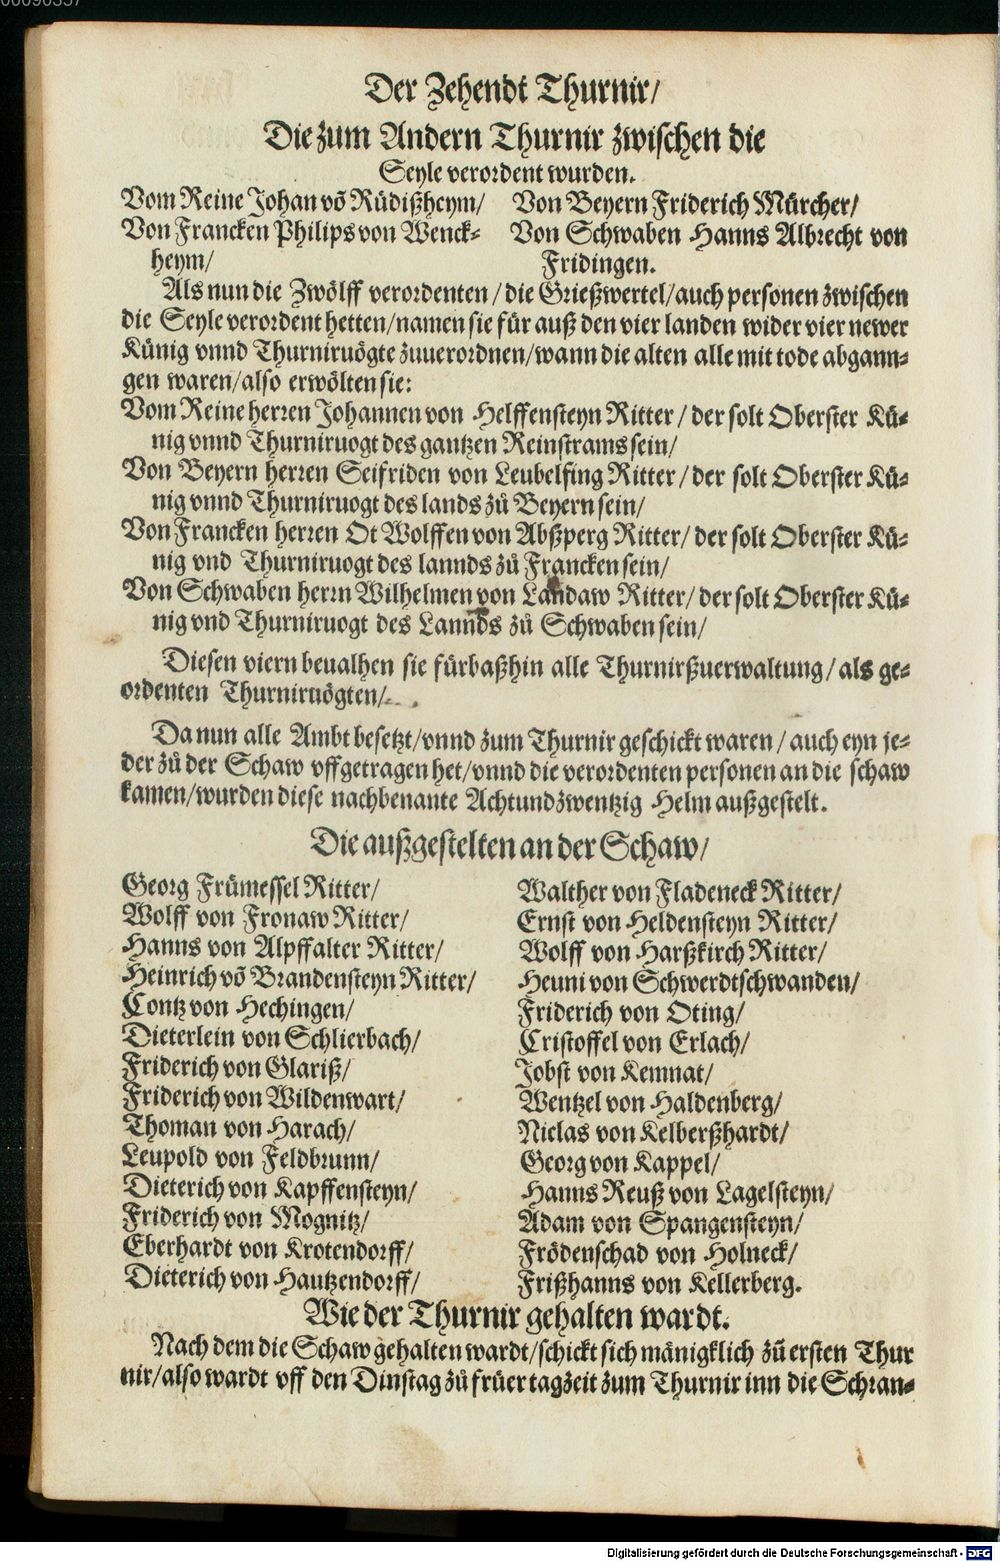 Der Zehendt Thurnir/
Die zum Andern Thurnir zwischen die
Seyle verordent wurden.
Vom Reine Johan võ Rüdißheym/
Von Francken Philips von Wenck-
heym/
Von Beyern Friderich Mürcher/
Von Schwaben Hanns Albrecht von
Fridingen.
Als nun die Zwölff verordenten / die Grießwertel/auch personen zwischen
die Seyle verordent hetten/namen sie für auß den vier landen wider vier newer
Künig vnnd Thurniruögte zuuerordnen/wann die alten alle mit tode abgann-
gen waren/also erwölten sie:
Vom Reine herren Johannen von Helffensteyn Ritter / der solt Oberster Kü-
nig vnnd Thurniruogt des gantzen Reinstrams sein/
Von Beyern herren Seifriden von Leubelfing Ritter / der solt Oberster Kü-
nig vnnd Thurniruogt des lands zů Beyern sein/
Von Francken herren Ot Wolffen von Abßperg Ritter/ der solt Oberster Kü-
nig vnd Thurniruogt des lannds zů Francken sein/
Von Schwaben herrn Wilhelmen von Landaw Ritter/ der solt Oberster Kü-
nig vnd Thurniruogt des Lannds zů Schwaben sein/
Diesen viern beualhen sie fürbaßhin alle Thurnirßuerwaltung / als ge-
ordenten Thurniruögten/
Da nun alle Ambt besetzt/vnnd zum Thurnir geschickt waren / auch eyn je-
der zů der Schaw vffgetragen het/vnnd die verordenten personen an die schaw
kamen/wurden diese nachbenante Achtundzwentzig Helm außgestelt.
Die außgestelten an der Schaw/
Georg Frümessel Ritter/
Wolff von Fronaw Ritter/
Hanns von Alpffalter Ritter/
Heinrich võ Brandensteyn Ritter/
Contz von Hechingen/
Dieterlein von Schlierbach/
Friderich von Glariß/
Friderich von Wildenwart/
Thoman von Harach/
Leupold von Feldbrunn/
Dieterich von Kapffensteyn/
Friderich von Mognitz/
Eberhardt von Krotendorff/
Dieterich von Hautzendorff/
Walther von Fladeneck Ritter/
Ernst von Heldensteyn Ritter/
Wolff von Harßkirch Ritter/
Heuni von Schwerdtschwanden/
Friderich von Oting/
Cristoffel von Erlach/
Jobst von Kemnat/
Wentzel von Haldenberg/
Niclas von Kelberßhardt/
Georg von Kappel/
Hanns Reuß von Lagelsteyn/
Adam von Spangensteyn/
Frödenschad von Holneck/
Frißhanns von Kellerberg.
Wie der Thurnir gehalten wardt.
Nach dem die Schaw gehalten wardt/schickt sich mänigklich zů ersten Thur
nir/also wardt vff den Dinstag zů früer tagzeit zum Thurnir inn die Schran-
Digitalisierung gefördert durch die Deutsche Forschungsgemeinschaft - DFG